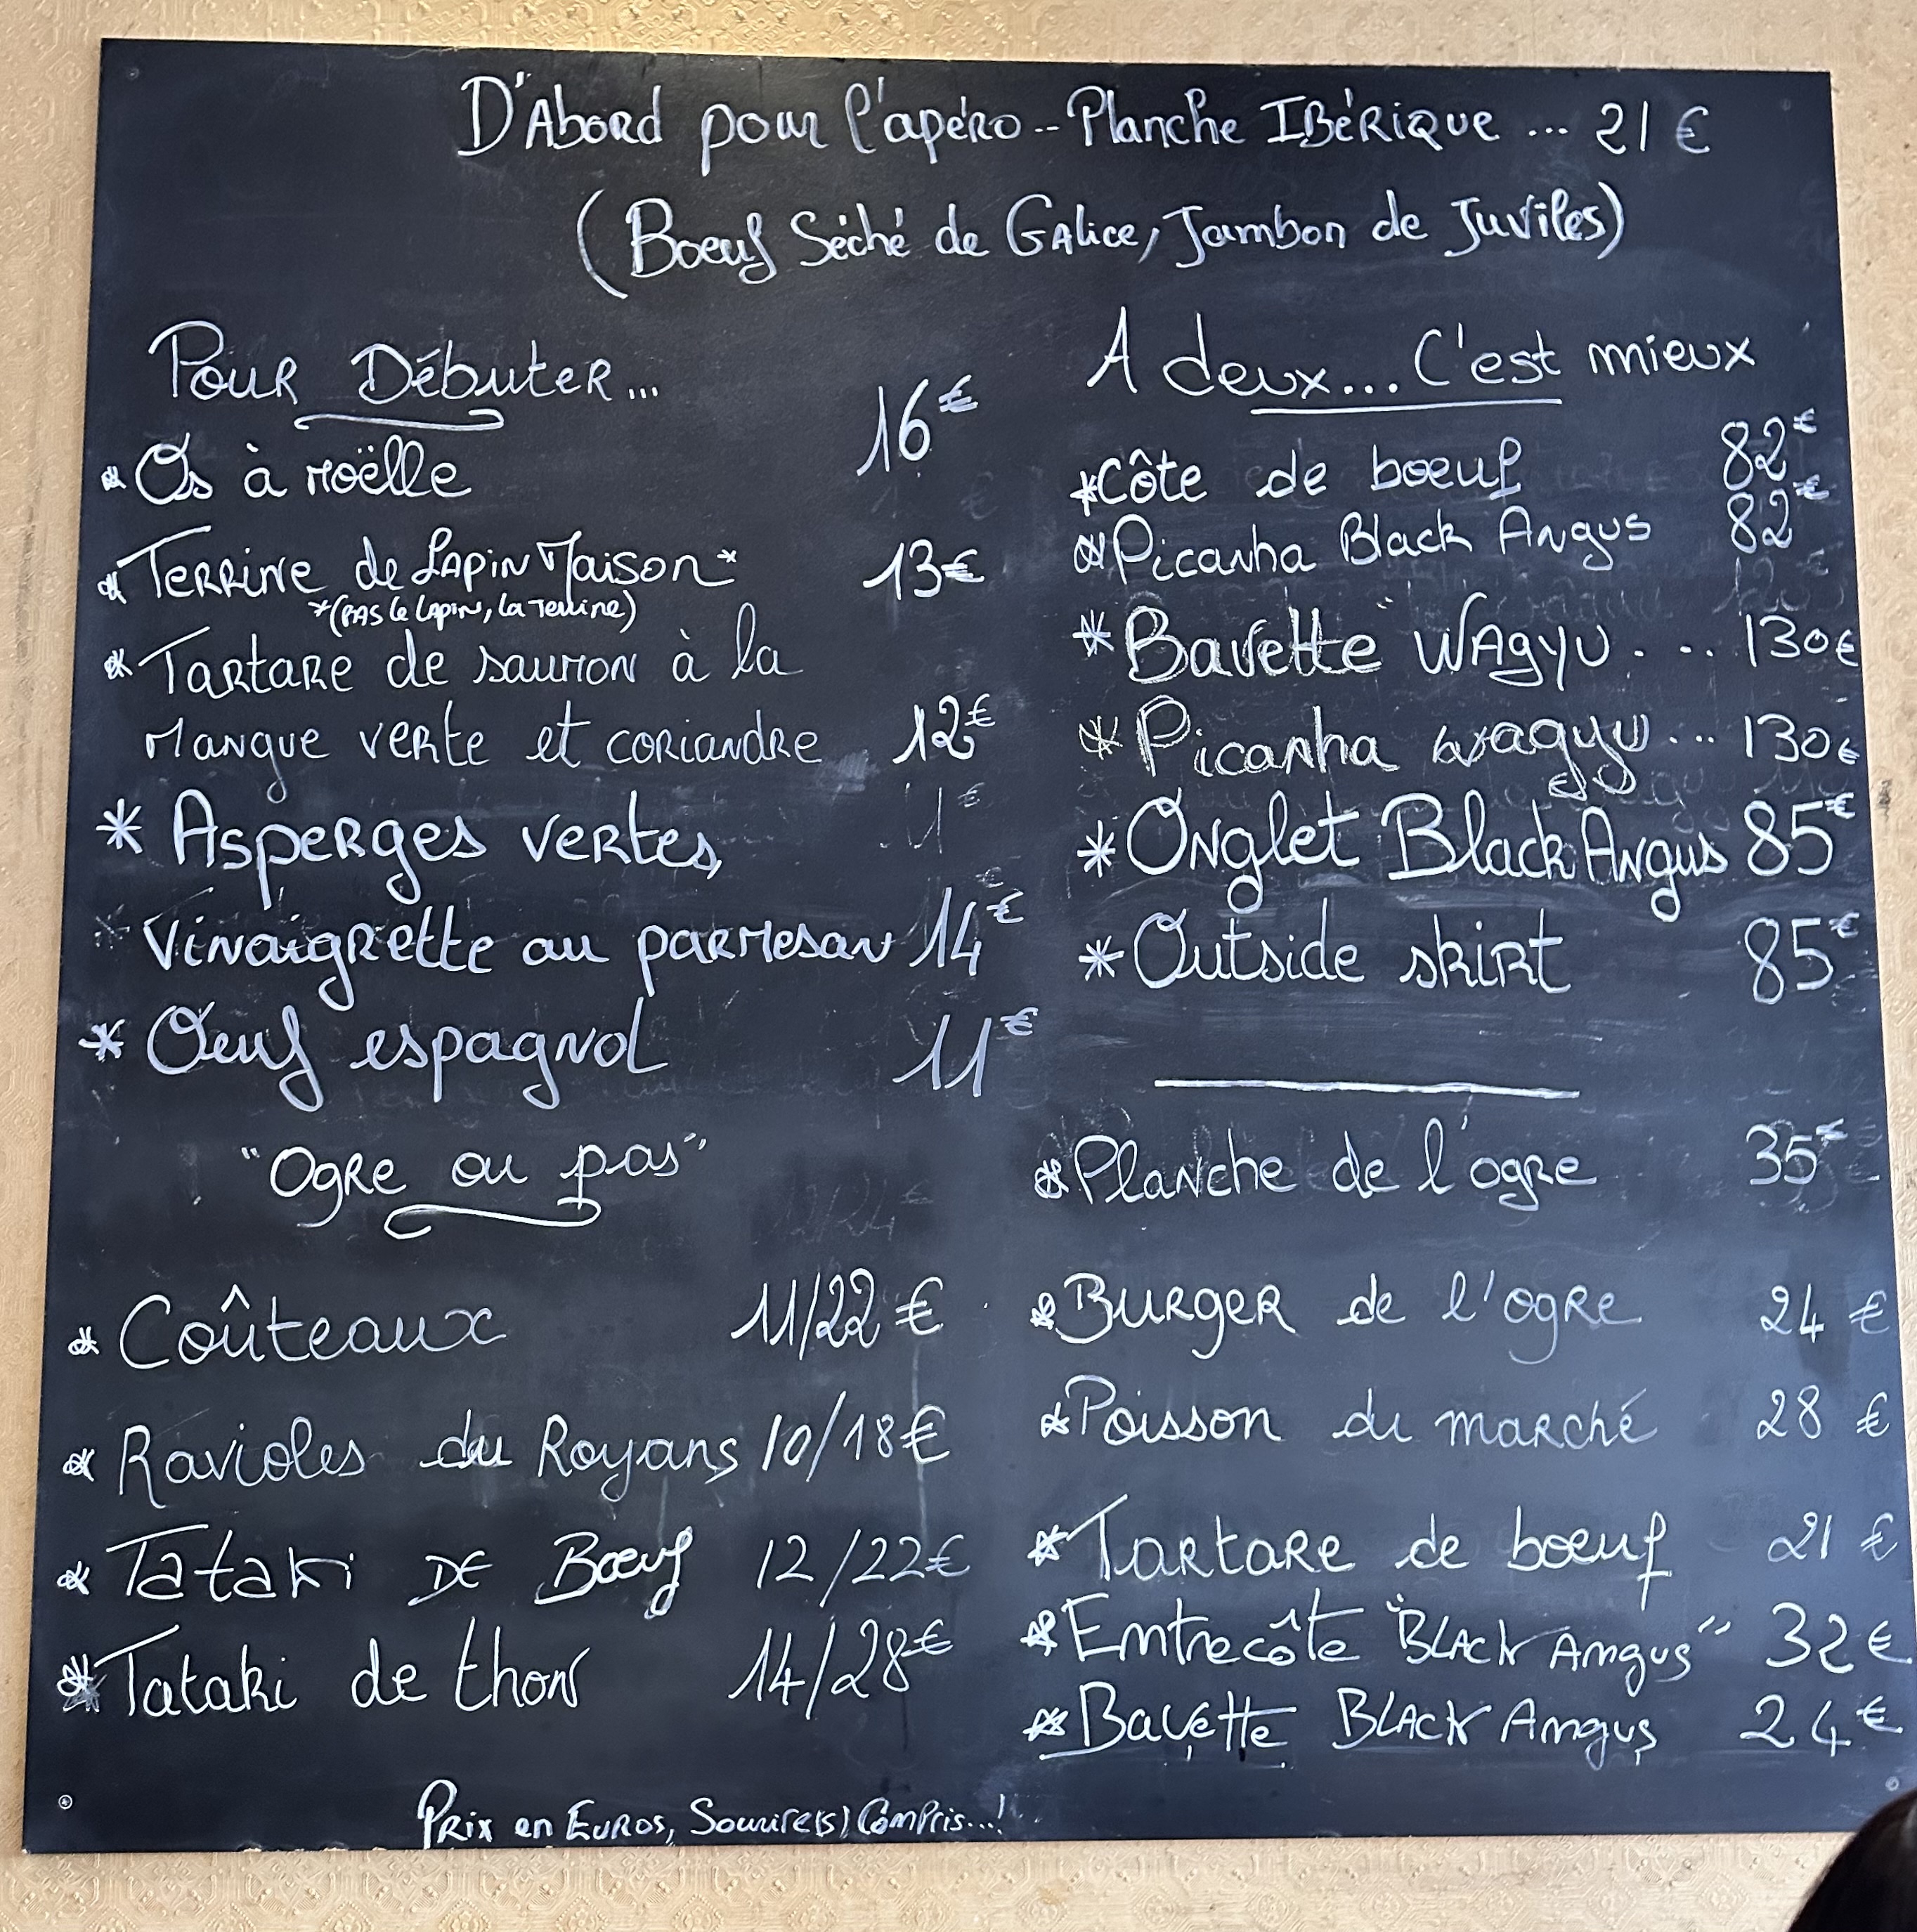 D'Abord pour l'apéro -- Planche IBéRique ... 21 €
(Boeuf Séché de Galice, Jambon de Juviles)
Pour Débuter...
* Os à moëlle 16€
* Terrine de Lapin Maison* 13€
*(pas le lapin, la terrine)
* Tartare de saumon à la
mangue verte et coriandre 12€
* Asperges vertes,
vinaigrette au parmesan 14€
* Œuf espagnol 11€
"Ogre ou pas"
* Coûteaux 11/22 €
* Ravioles du Royans 10/18€
* Tataki DE Bœuf 12/22€
* Tataki de thon 14/28€
A deux... C'est mieux
* Côte de boeuf 82€
* Picanha Black Angus 82€
* Bavette WAgyu ... 130€
* Picanha wagyu ... 130€
* Onglet Black Angus 85€
* Outside skirt 85€
* Planche de l'ogre 35€
* Burger de l'ogre 24 €
* Poisson du marché 28 €
* Tartare de boeuf 21 €
* Entrecôte "Black Angus" 32€
* Bavette Black Angus 24€
Prix en Euros, Sourire(s) Compris...!